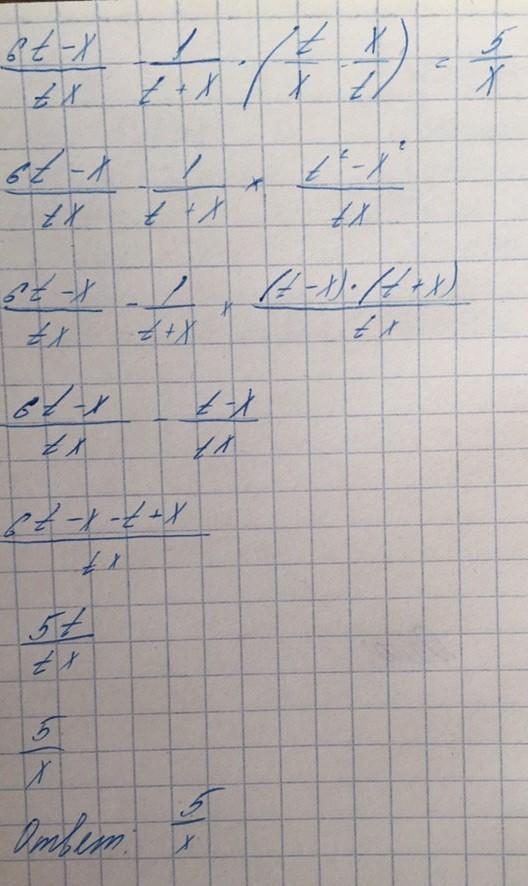 (6t-x)/(tx) - 1/(t+x) · (t/x - x/t) = 5/x
(6t-x)/(tx) - 1/(t+x) × (t²-x²)/(tx)
(6t-x)/(tx) - 1/(t+x) × ((t-x)·(t+x))/(tx)
(6t-x)/(tx) - (t-x)/(tx)
(6t-x-t+x)/(tx)
5t/(tx)
5/x
Ответ: 5/x